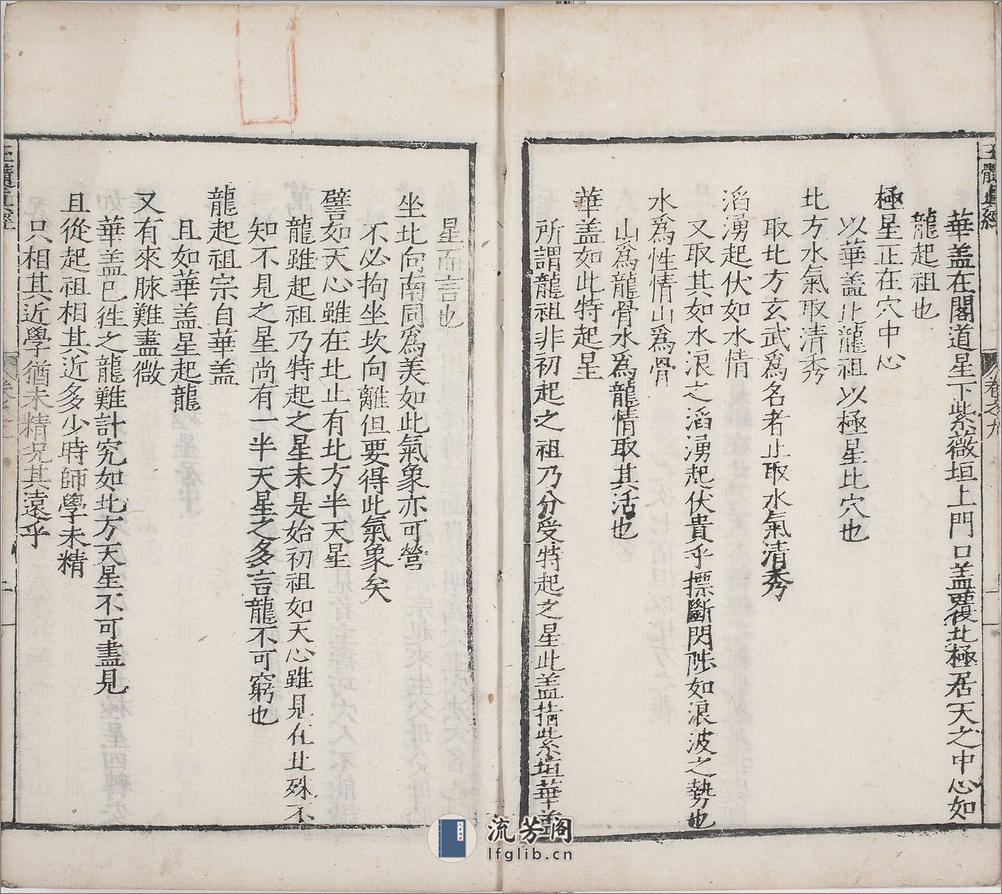 玉髓真經
卷之九
華盖在閣道星下紫薇垣上門口盖覆北極居天之中心如
龍起祖也
極星正在穴中心
以華盖比龍祖以極星比穴也
北方水氣取清秀
取北方玄武爲名者止取水氣清秀
滔湧起伏如水情
又取其如水浪之滔湧起伏貴乎摽斷閃跌如浪波之勢也
水爲性情山爲骨
山爲龍骨水爲龍情取其活也
華盖如此特起星
所謂龍祖非初起之祖乃分受特起之星此盖指紫垣華盖
星而言也
坐北向南同爲美如此氣象亦可營
不必拘坐坎向離但要得此氣象矣
譬如天心雖在北止有北方半天星
龍雖起祖乃特起之星未是始初祖如天心雖見在北殊不
知不見之星尚有一半天星之多言龍不可窮也
龍起祖宗自華盖
且如華盖星起龍
又有來脉難盡微
華盖已徃之龍難計究如北方天星不可盡見
且從起祖相其近多少時師學未精
只相其近學猶未精况其遠乎
玉髓真經
流芳阁
lfglib.cn